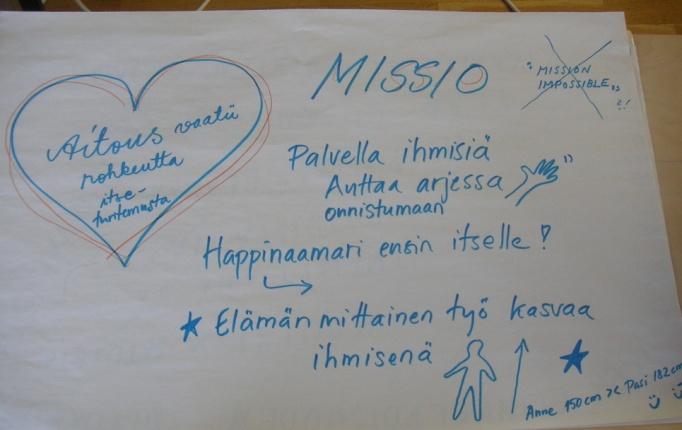 Aitous vaatii
rohkeutta
itse-
tuntemusta
MISSIO
"MISSION
IMPOSSIBLE"
!!
Palvella ihmisiä
Auttaa arjessa
onnistumaan
Happinaamari ensin itselle!
Elämän mittainen työ kasvaa
ihmisenä
Anne 150cm >< Pasi 182cm